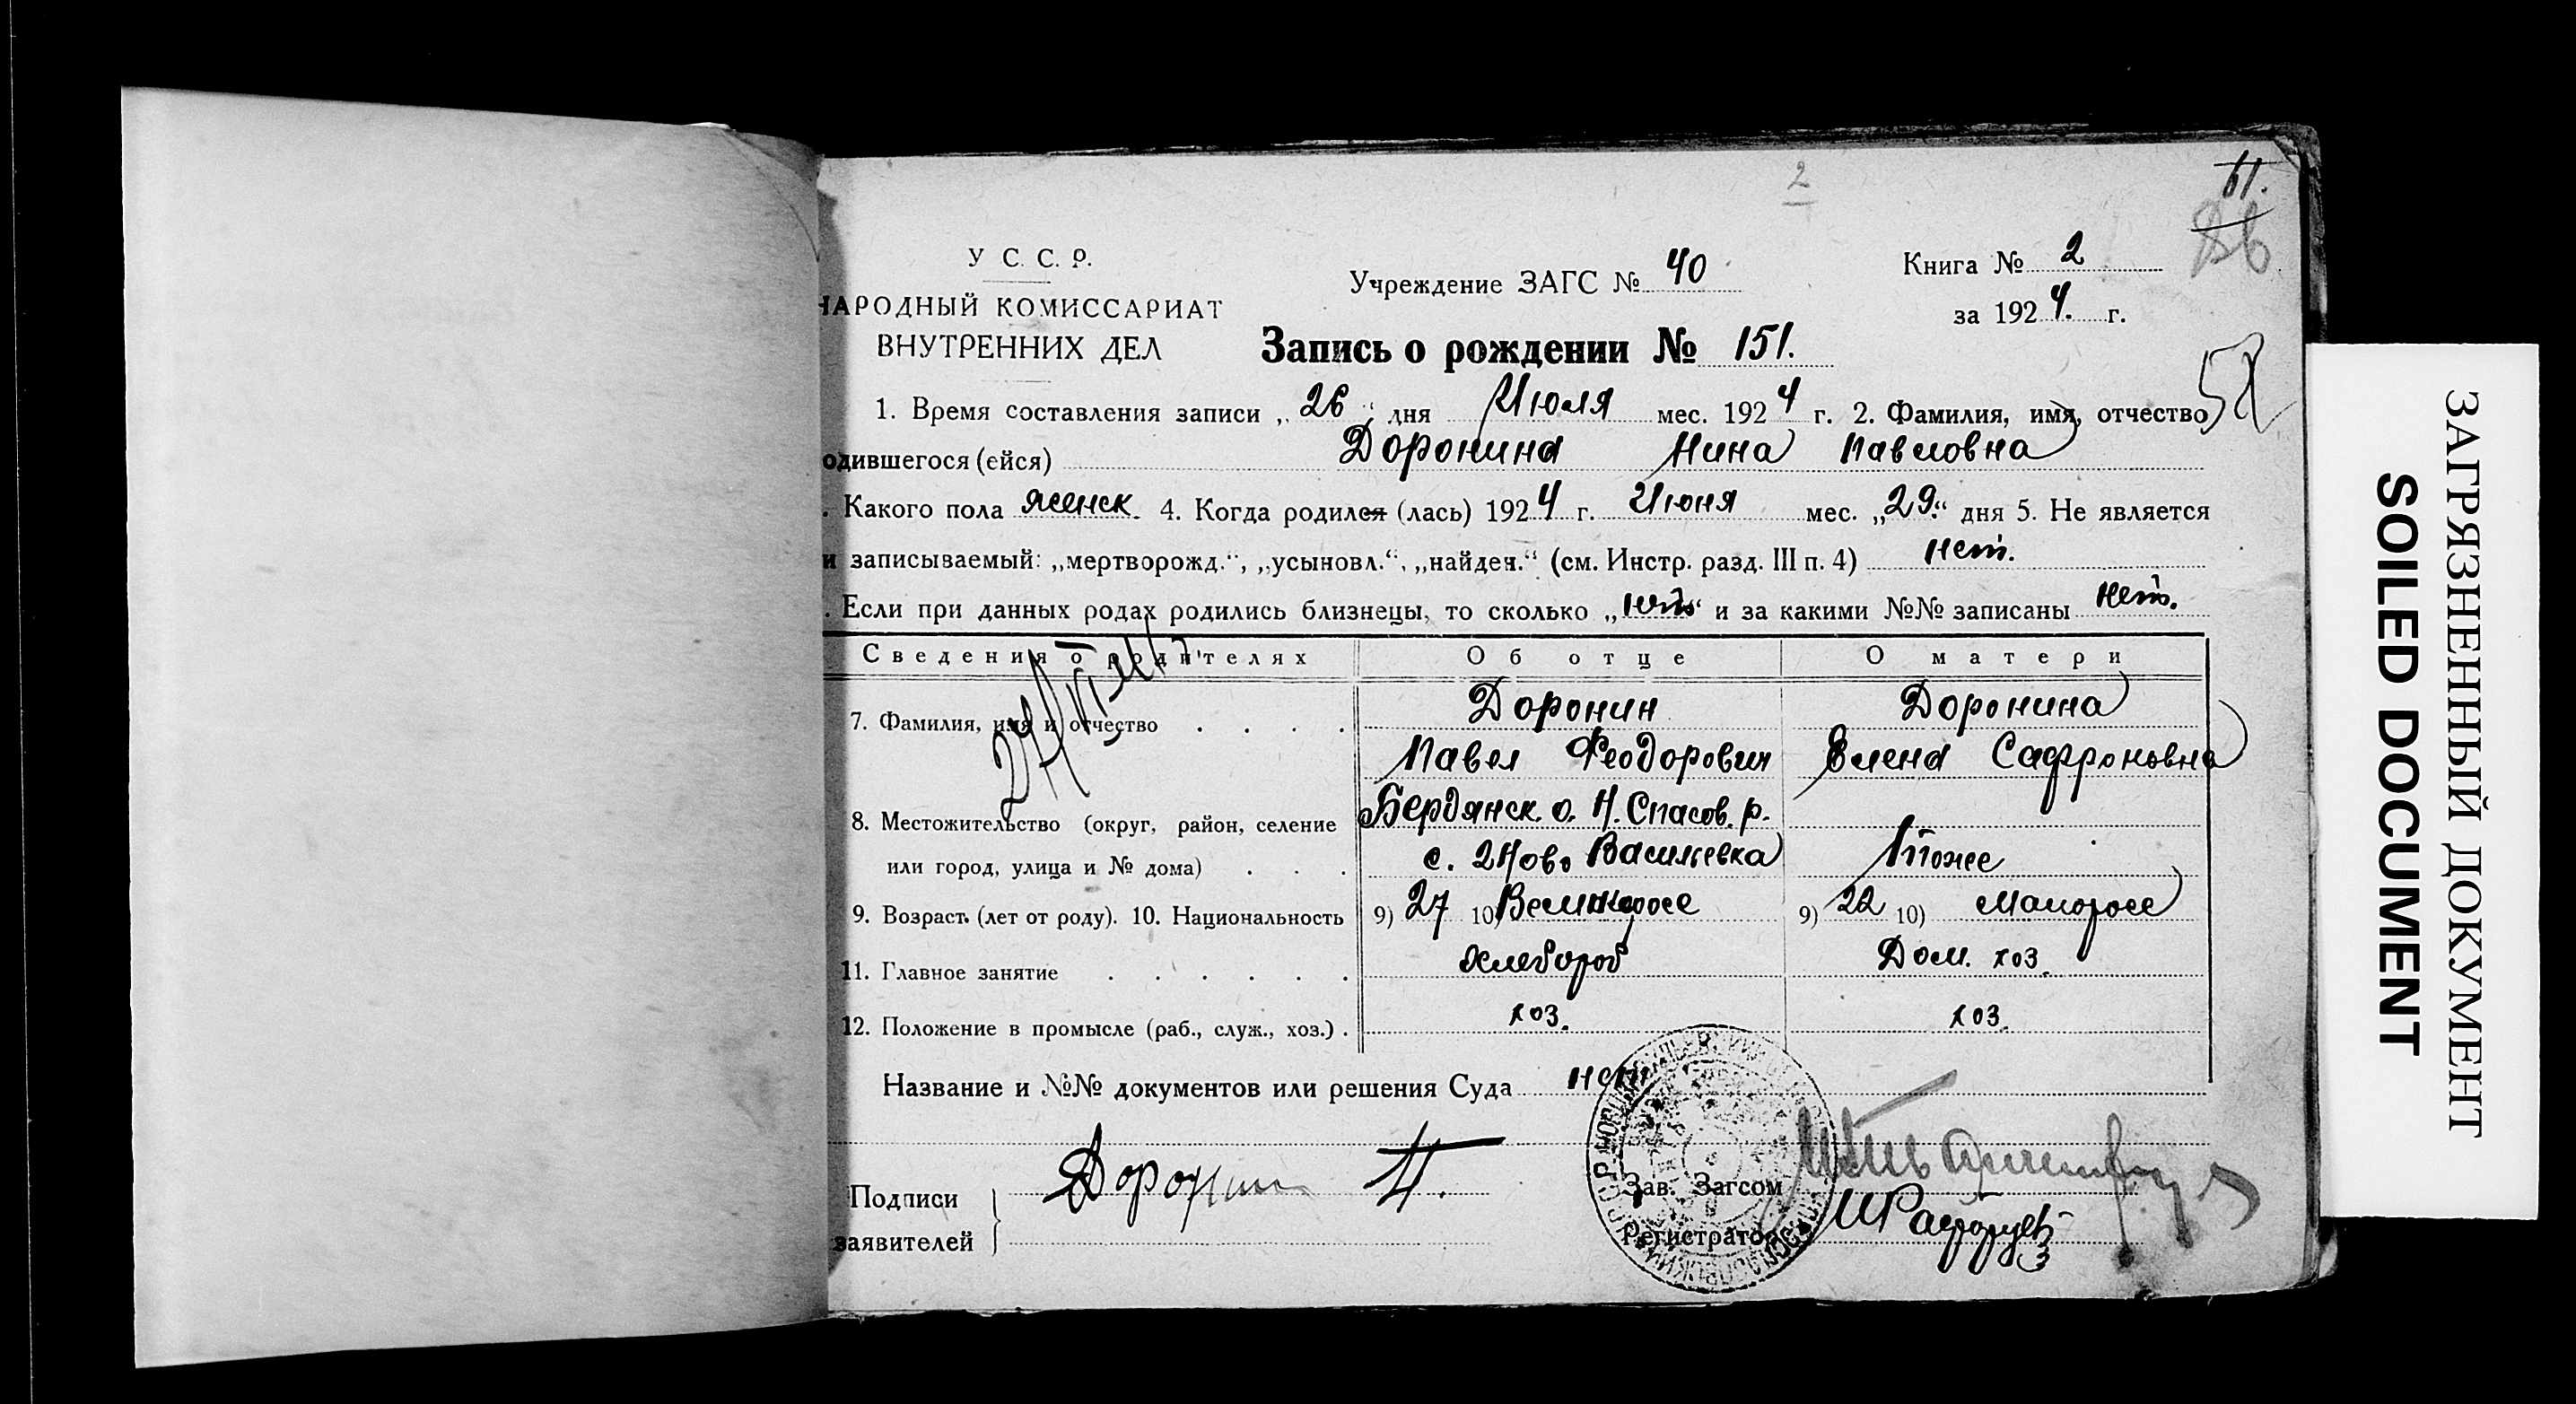 2
61.
86
У. С. С. Р.
НАРОДНЫЙ КОМИССАРИАТ
ВНУТРЕННИХ ДЕЛ
Учреждение ЗАГС № 40
Книга № 2
за 1924. г.
Запись о рождении № 151.
52
1. Время составления записи „26“ дня Июля мес. 1924 г. 2. Фамилия, имя, отчество
одившегося (ейся) Доронина Нина Павловна
. Какого пола женск. 4. Когда родился (лась) 1924 г. Июня мес. „29.“ дня 5. Не является
и записываемый: „мертворожд.“, „усыновл.“, „найден.“ (см. Инстр. разд. III п. 4) нет.
. Если при данных родах родились близнецы, то сколько „нет“ и за какими №№ записаны нет.
Сведения о родителях Об отце О матери
7. Фамилия, имя и отчество . . . . Доронин Доронина
Павел Феодорович Елена Сафроновна
8. Местожительство (округ, район, селение Бердянск. о. Н. Спасов. р.
или город, улица и № дома) . . . с. Ново Васильевка Тоже
9. Возраст (лет от роду). 10. Национальность 9) 27 10) Великоросс 9) 22 10) Малоросс
11. Главное занятие . . . . . . Хлебороб Дом. хоз.
12. Положение в промысле (раб., служ., хоз.) . хоз. хоз.
Название и №№ документов или решения Суда нет
Подписи
заявителей
Доронин П.
Зав. Загсом
Регистратор
ЗАГРЯЗНЕННЫЙ ДОКУМЕНТ
SOILED DOCUMENT